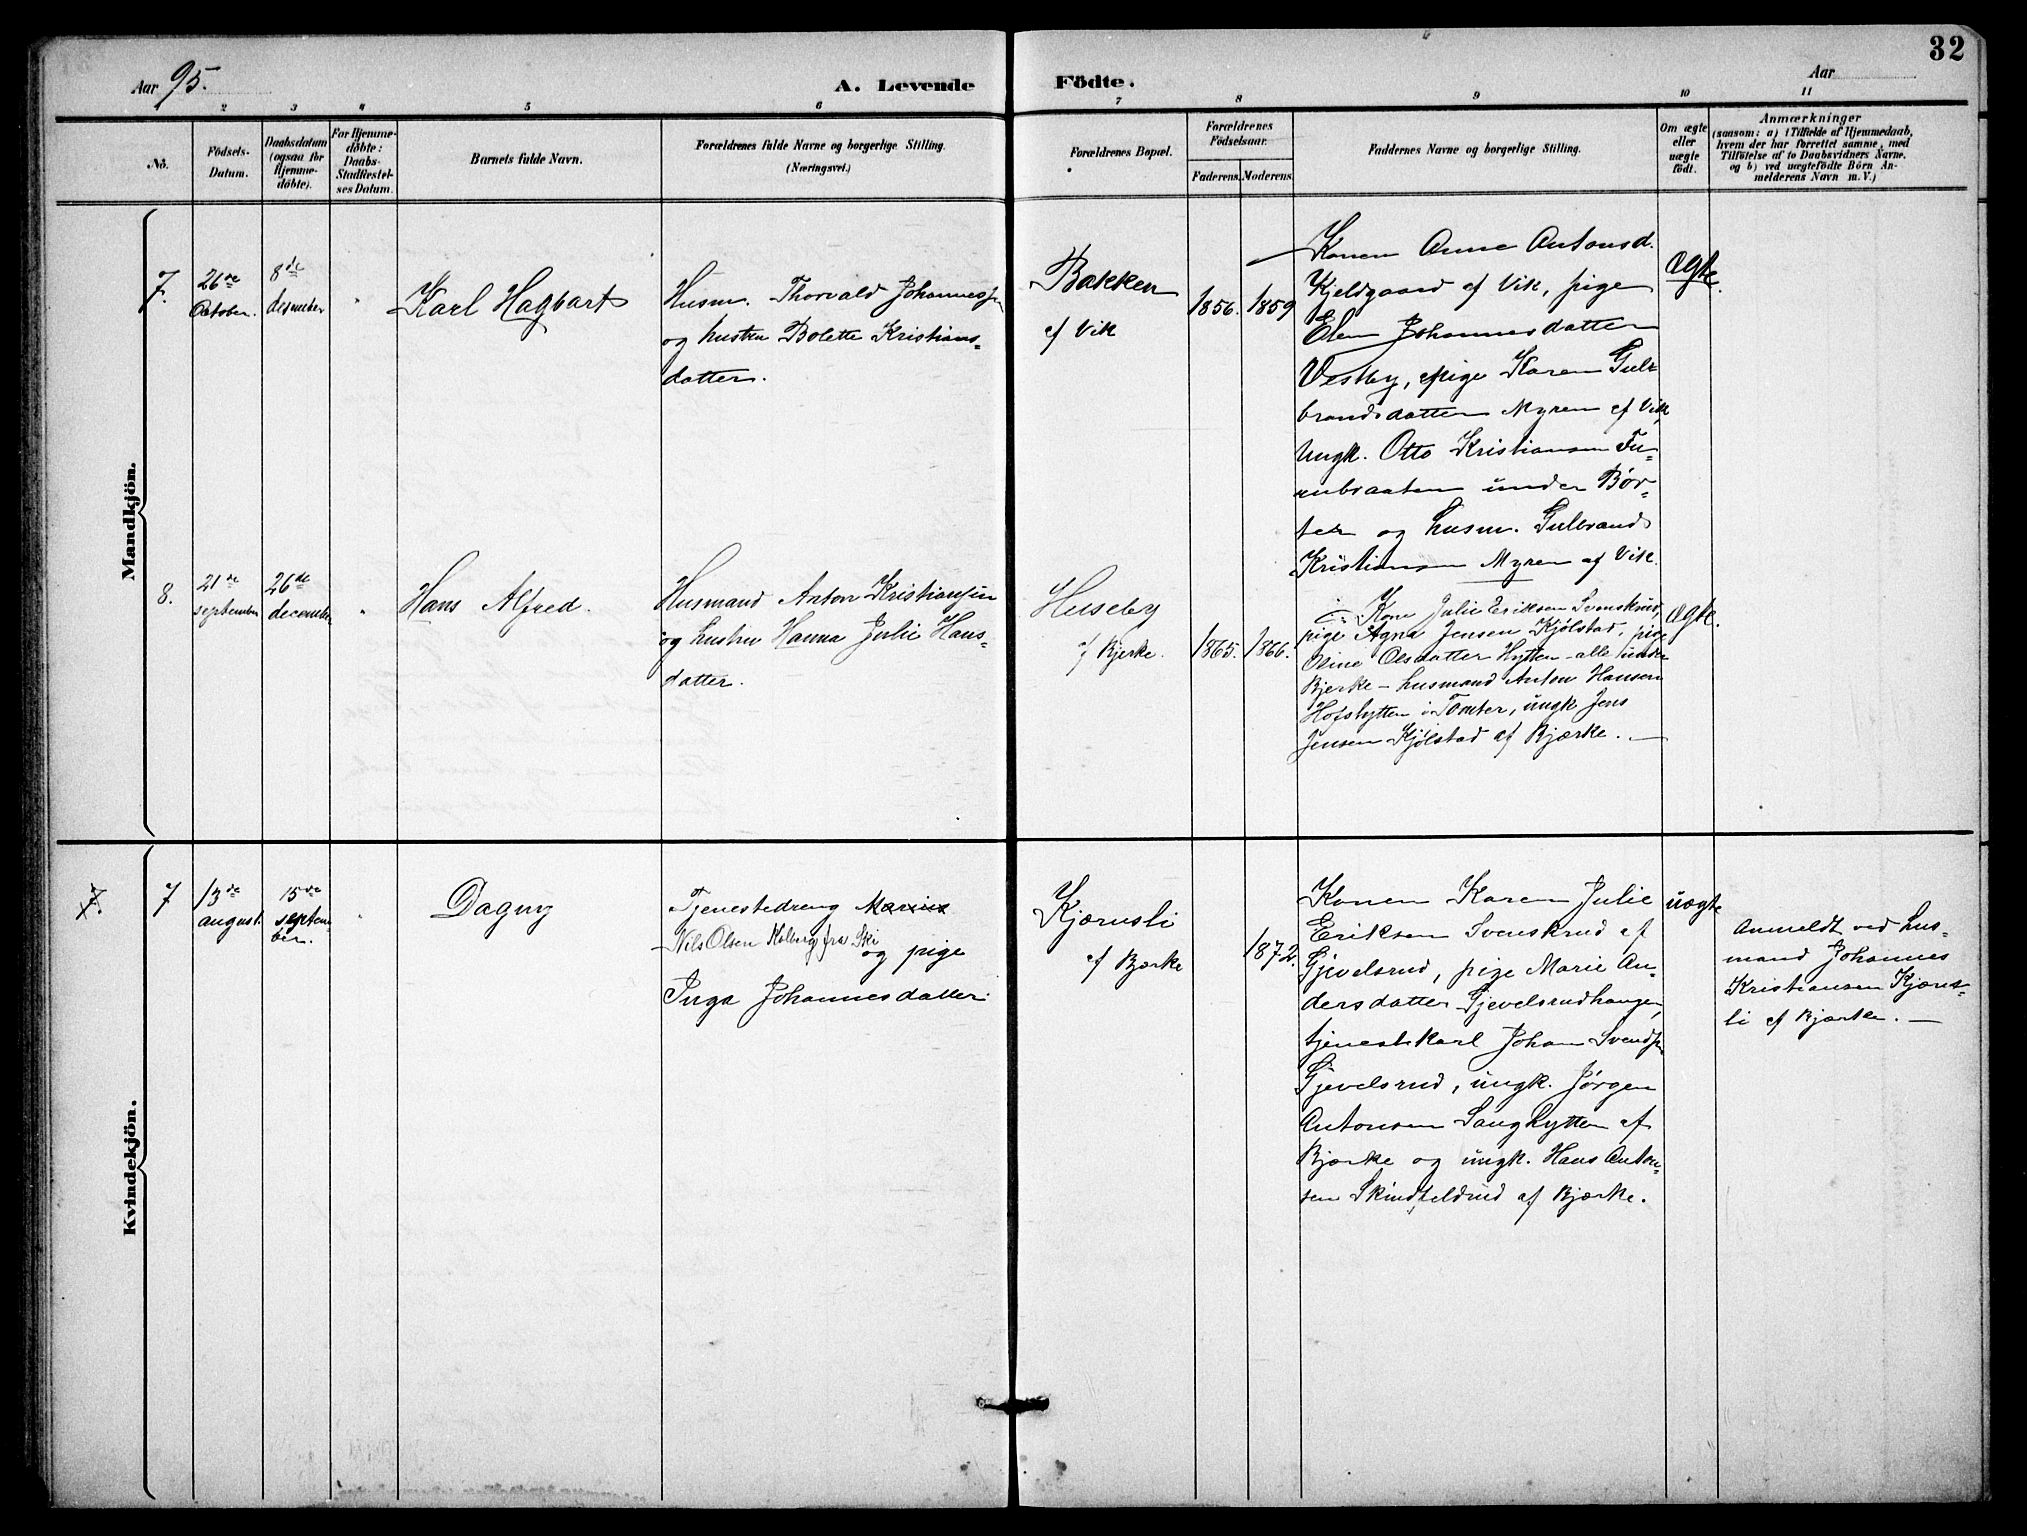 32
Aar 95.
A. Levende Födte.
Aar
2 3 4 5 6 7 8 9 10 11
No.
Födsels-
Datum.
Daabsdatum
(ogsaa for
Hjemme-
döbte).
For Hjemme-
döbte:
Daabs-
Stadfæstel-
ses Datum.
Barnets fulde Navn.
Forældrenes fulde Navne og borgerlige Stilling.
(Næringsvei.)
Forældrenes Bopæl.
Forældrenes
Födselsaar.
Faderens. Moderens.
Faddernes Navne og borgerlige Stilling.
Om ægte
eller
uægte
födt.
Anmærkninger
(saasom: a) i Tilfælde af Hjemmedaab,
hvem der har forrettet samme, med
Tilföielse af to Daabsvidners Navne,
og b) ved uægtefödte Börn An-
melderens Navn m. V.)
Mandkjön.
7.
26de
October.
8de
desember
"
Karl Hagbart
Husm. Thorvald Johannessen
og hustru Bolette Kristians-
datter.
Bakken
af Vik
1856.
1859
Konen Anne Antonsd.
Kjeldgaard af Vik, pige
Elen Johannesdatter
Vestby, pige Karen Gul-
brandsdatter Myren af Vik,
Ungk. Otto Kristiansen Fu-
rubraaten under Bör-
ter og husm. Gulbrand
Kristiansen Myren af Vik.
ægte.
8.
21de
september
26de
december
"
Hans Alfred.
Husmand Anton Kristiansen
og hustru Hanna Julie Hans-
datter.
Huseby
af Bjerke.
1865.
1866.
Kone Julie Eriksen Svenskrud,
pige Agna Jensen Kjölstad, pige
Oline Olsdatter Hytten – alle under
Bjerke – husmand Anton Hansen
Hofshytten i Tomter, ungk Jens
Jensen Kjölstad af Bjærke. —
ægte.
Kvindekjön.
7.
7
13de
august.
15de
septem-
ber.
"
Dagny
Tjenestedreng Marius
Nils Olsen Kolberg fra Ski
og pige
Inga Johannesdatter.
Kjærnsli
af Bjærke
1872.
Konen Karen Julie
Eriksen Svenskrud af
Gjevelsrud, pige Marie An-
dersdatter Gjevelsrudhaugen,
tjenestekarl Johan Svendsen
Gjevelsrud, ungk. Jörgen
Antonsen Saughytten af
Bjærke og ungk. Hans Anton-
sen Skindfeldrud af Bjærke.
uægte
Anmeldt ved hus-
mand Johannes
Kristiansen Kjærns-
li af Bjærke. —